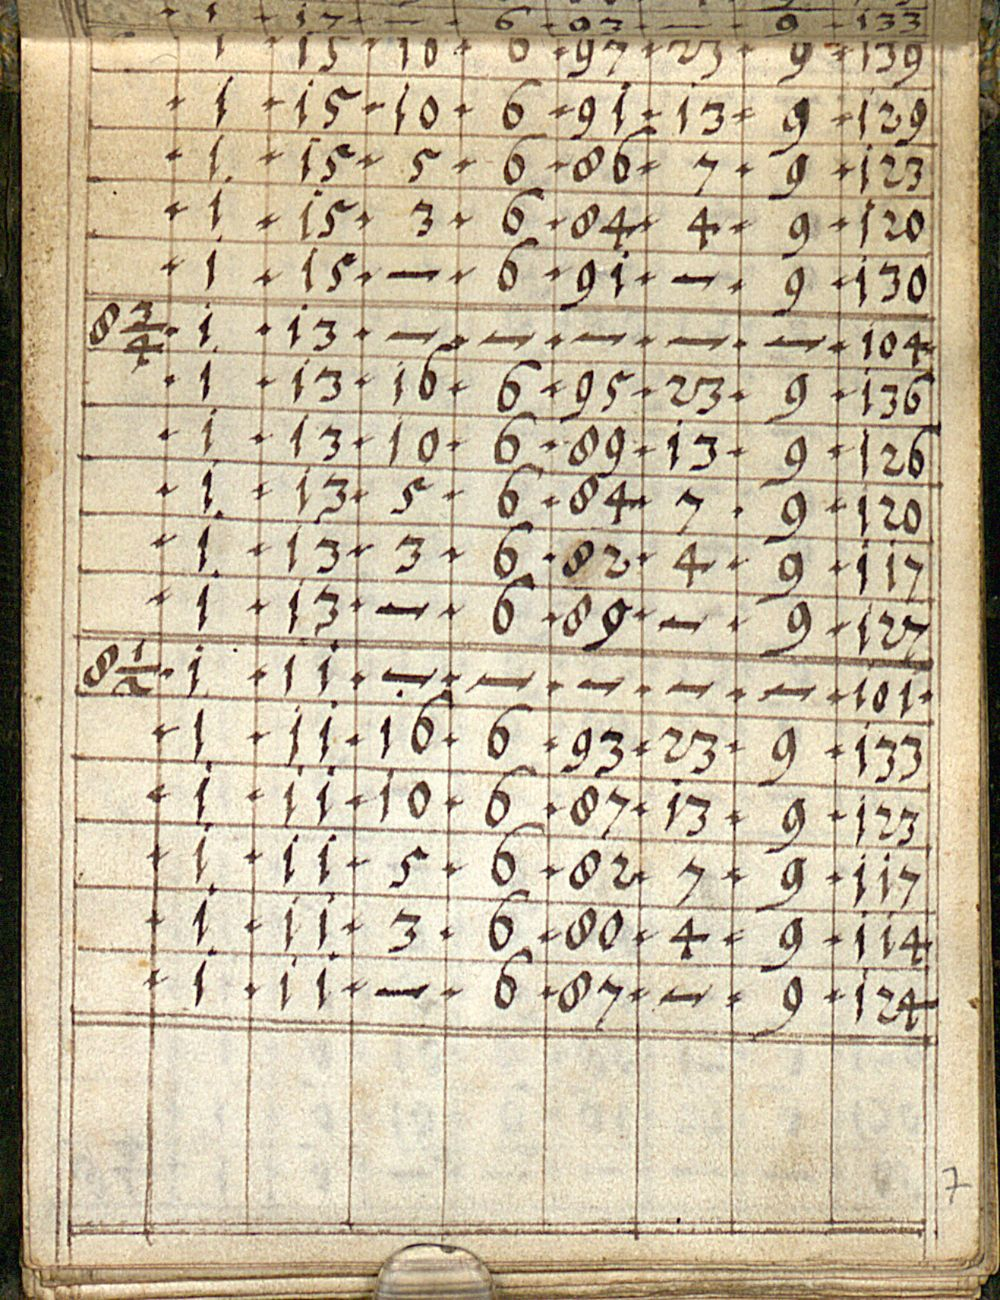 1 17 — 6 93 — 9 133
1 15 10 6 97 23 9 139
1 15 10 6 91 13 9 129
1 15 5 6 86 7 9 123
1 15 3 6 84 4 9 120
1 15 — 6 91 — 9 130
8 3/4 1 13 — — — — — 104
1 13 16 6 95 23 9 136
1 13 10 6 89 13 9 126
1 13 5 6 84 7 9 120
1 13 3 6 82 4 9 117
1 13 — 6 89 — 9 127
8 1/2 1 11 — — — — — 101
1 11 16 6 93 23 9 133
1 11 10 6 87 13 9 123
1 11 5 6 82 7 9 117
1 11 3 6 80 4 9 114
1 11 — 6 87 — 9 124
7